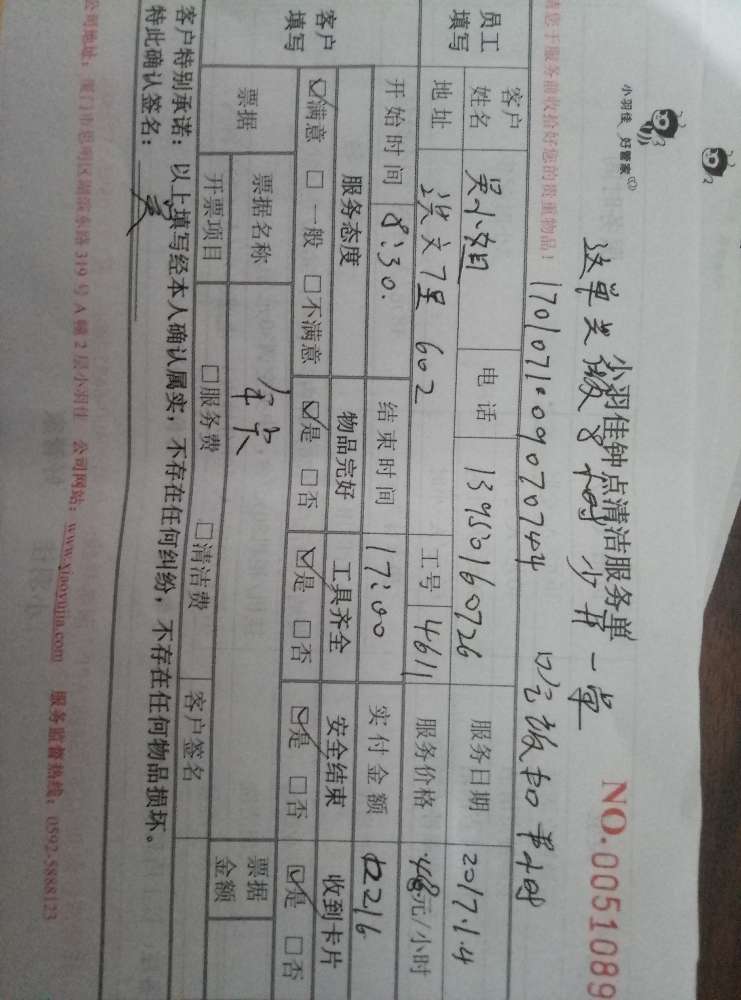 小羽佳 好管家
NO.0051089
小羽佳钟点清洁服务单
这单 做8小时 少 一单
您于服务前收拾好您的贵重物品!
170107100907074
员工填写
客户姓名 吴小姐 电话 13950160726 服务日期 2017.1.4
地址 洪文7里602 工号 4611 服务价格 48元/小时
客户填写
开始时间 8:30. 结束时间 17:00 实付金额 216
服务态度 物品完好 工具齐全 安全结束 收到卡片
☑满意 □一般 □不满意 ☑是 □否 ☑是 □否 ☑是 □否 ☑是 □否
票据 票据名称 票据金额
开票项目 □服务费 □清洁费 客户签名
客户特别承诺:以上填写经本人确认属实,不存在任何纠纷,不存在任何物品损坏。
特此确认签名: 吴
公司地址:厦门市思明区湖滨东路319号A幢2层小羽佳 公司网站:www.xiaoyujia.com 服务监督热线:0592-5888123